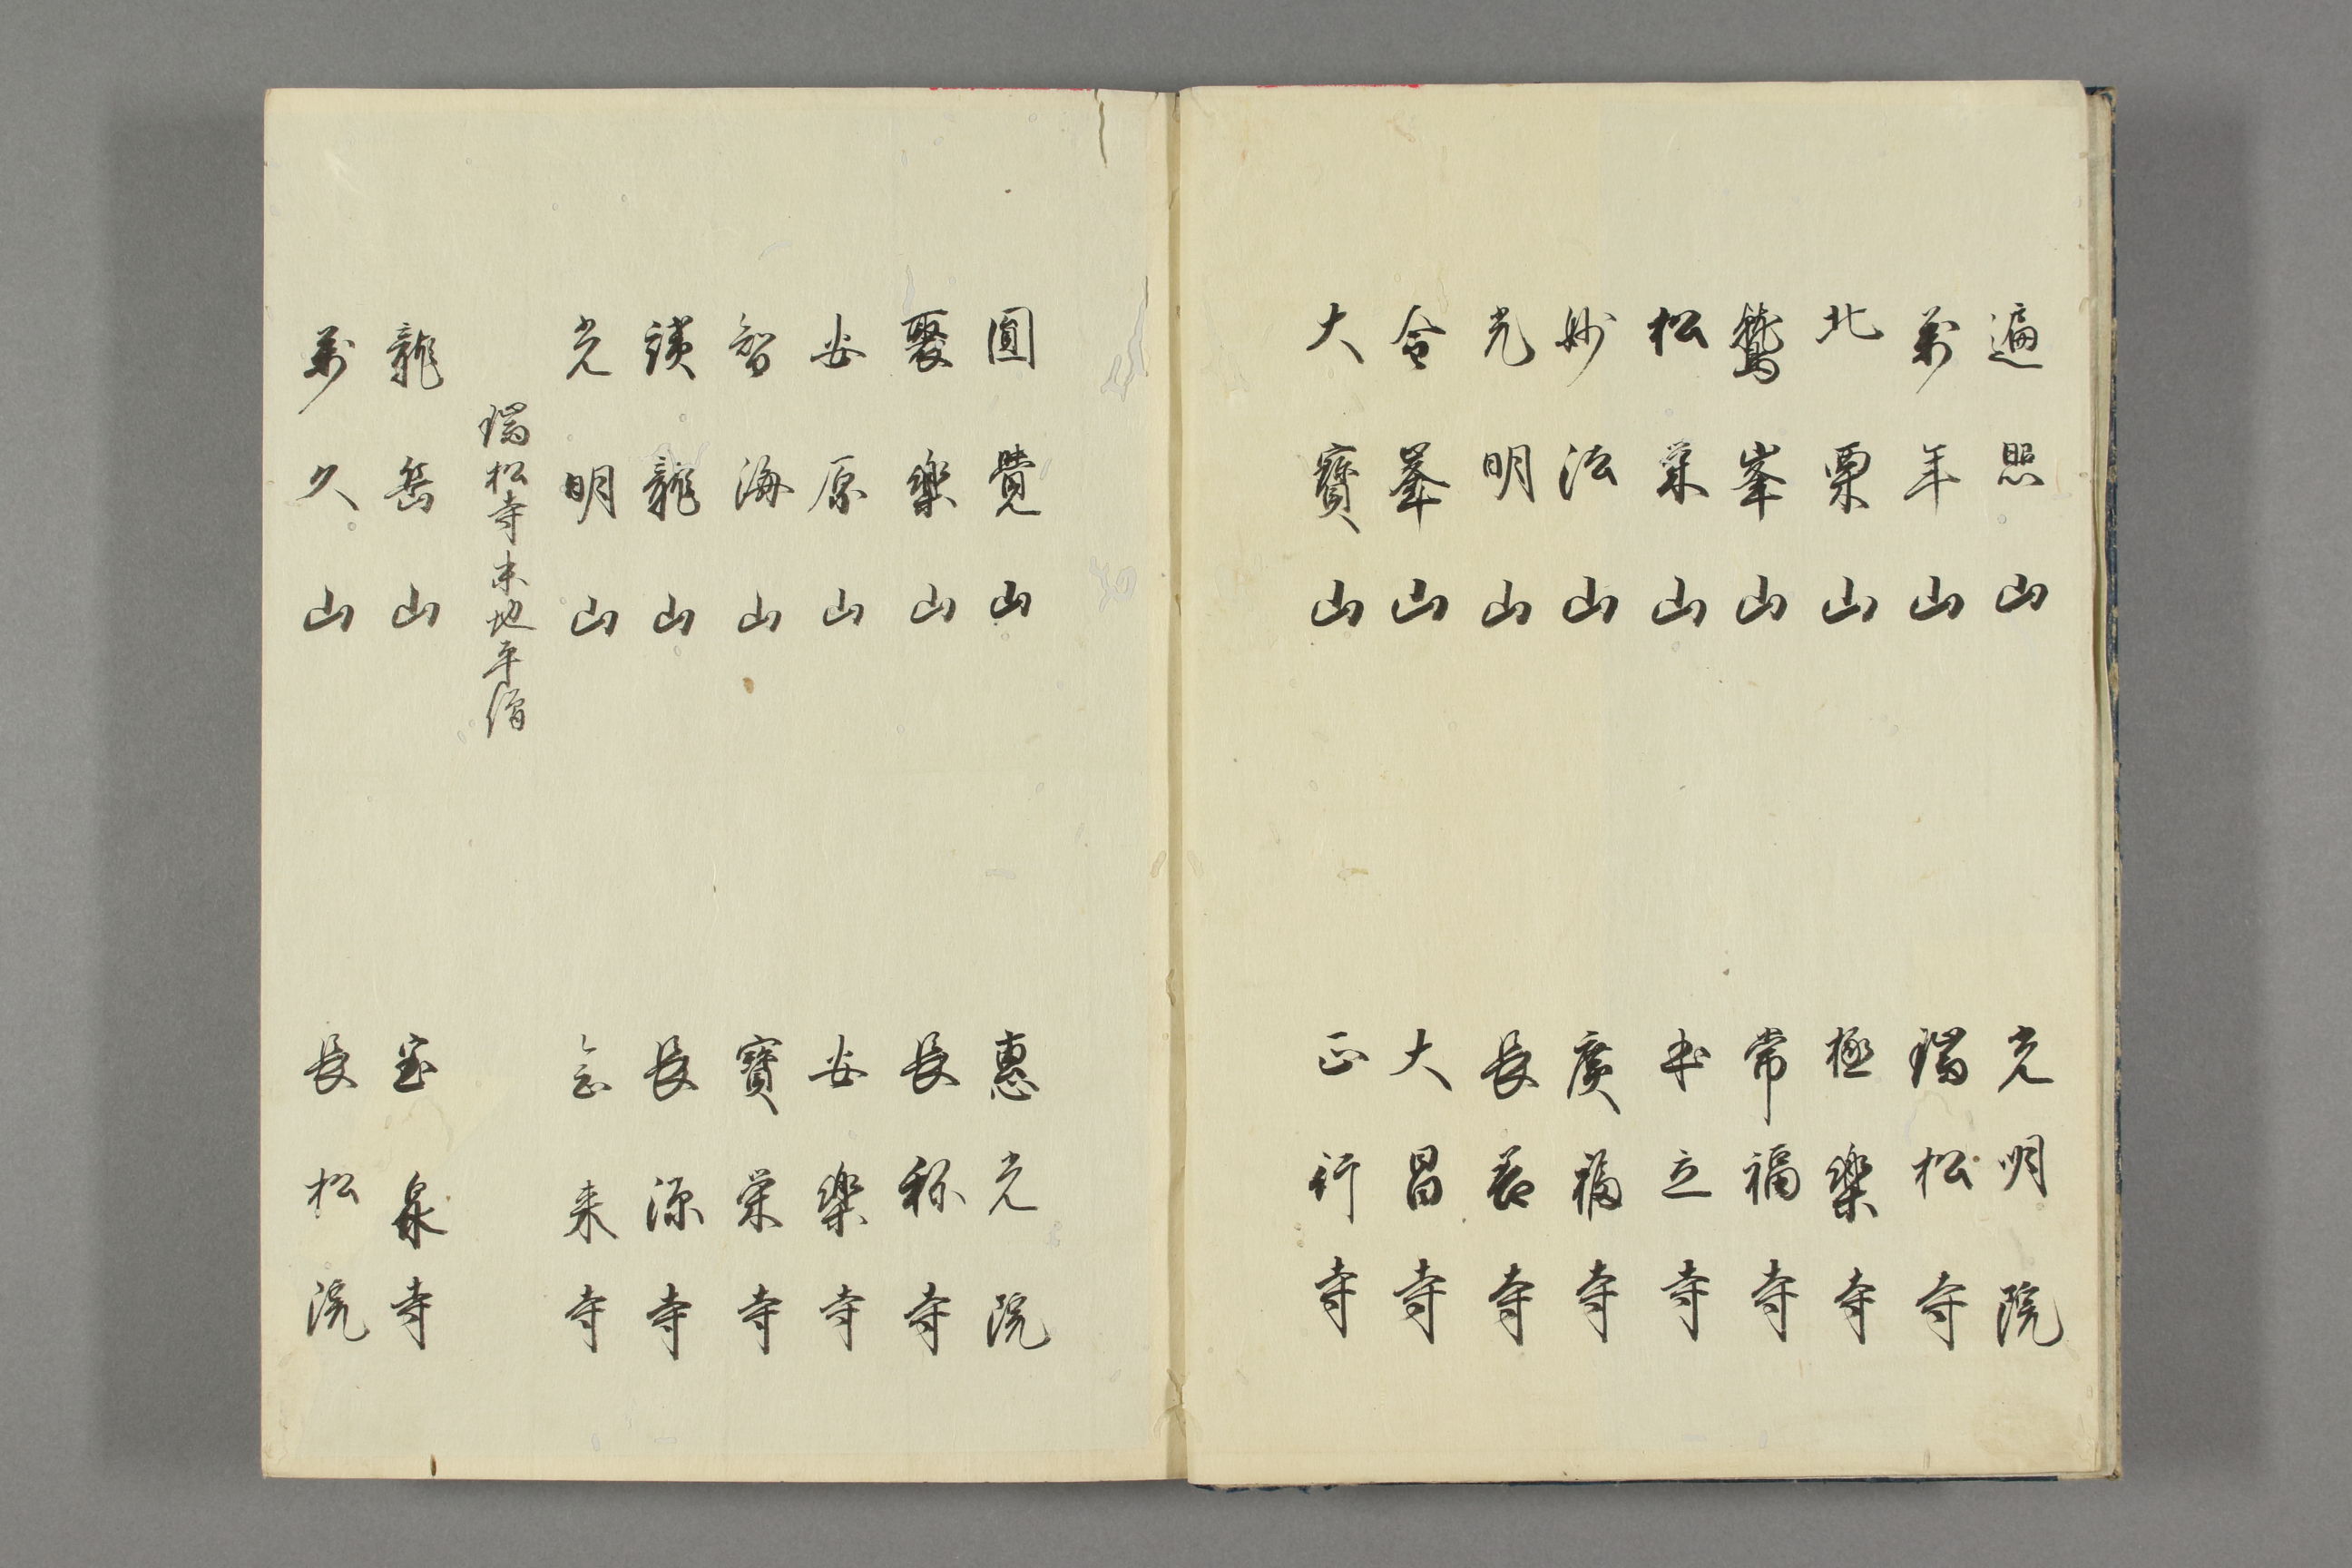 遍照山 光明院
萬年山 瑞松寺
北栗山 極樂寺
鷲峯山 常福寺
松栄山 本立寺
妙法山 廣福寺
光明山 長善寺
令峯山 大昌寺
大寳山 正行寺
圓覺山 惠光院
聚樂山 長称寺
安原山 安樂寺
智海山 寳栄寺
護龍山 長源寺
光明山 念来寺
瑞松寺末地平僧
龍岳山 宝泉寺
萬久山 長松院